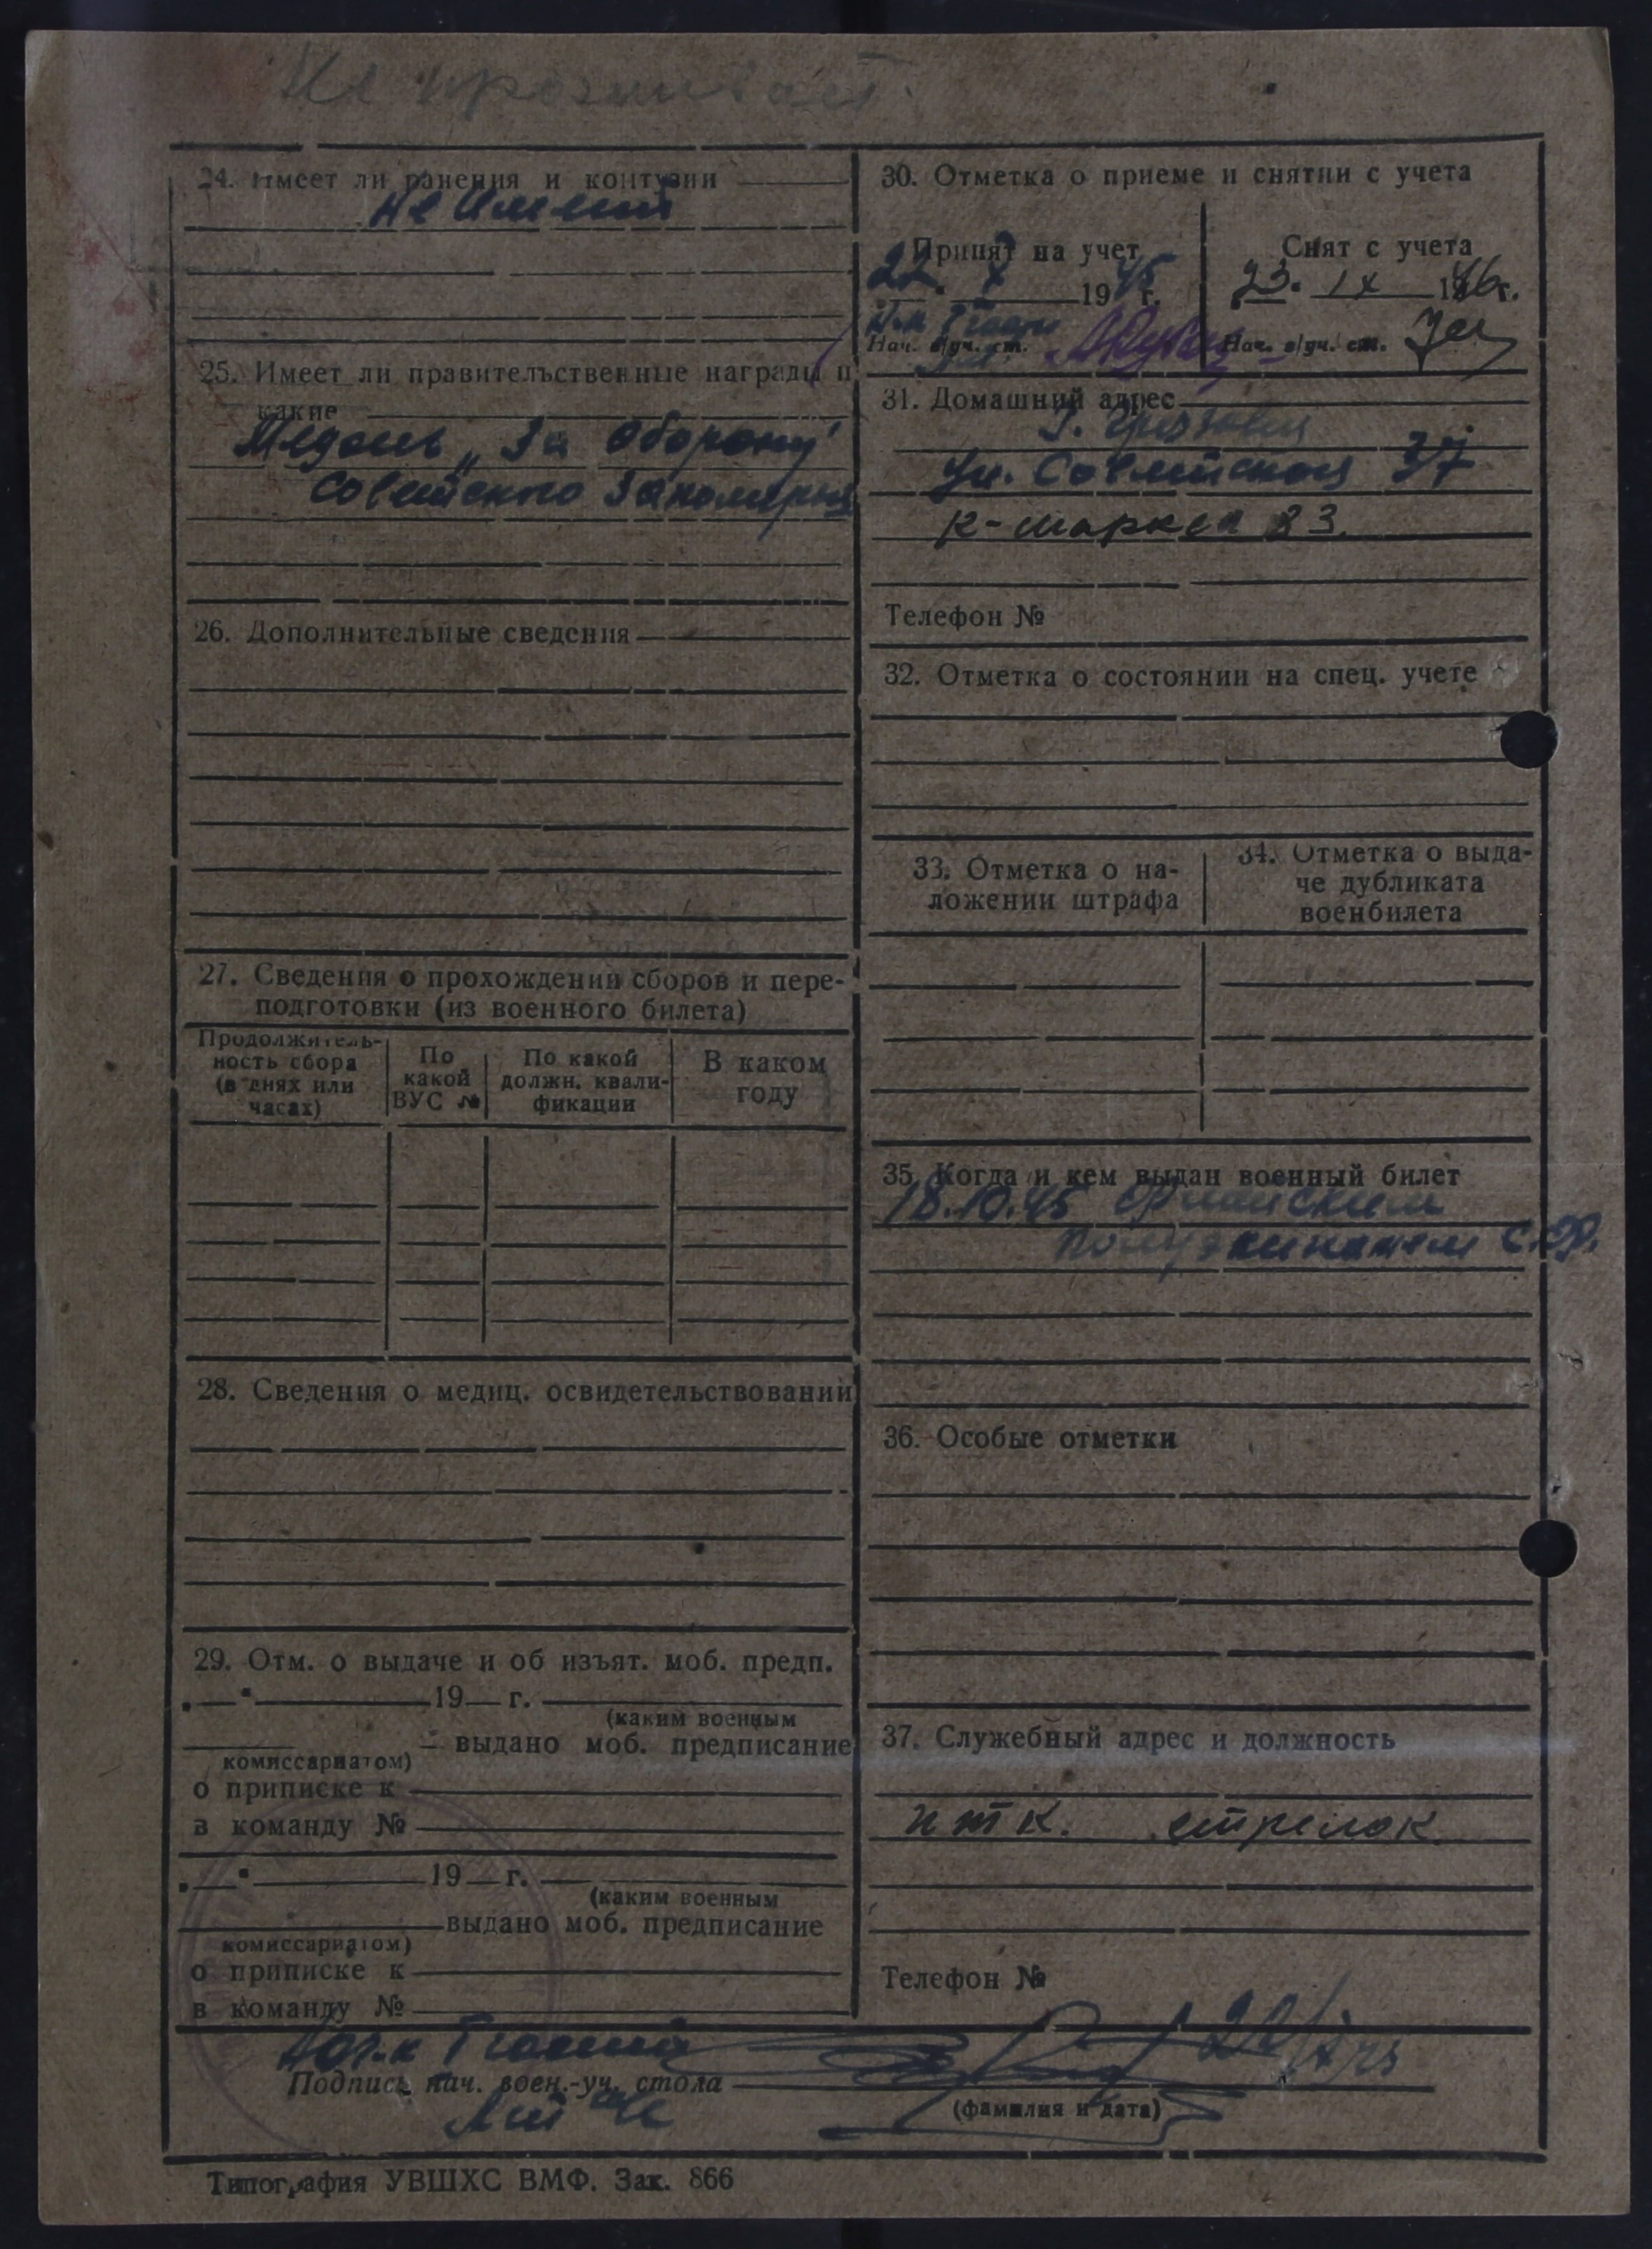 Не проживает.
24. Имеет ли ранения и контузии
не имеет
25. Имеет ли правительственные награды и
какие
Медаль „За оборону
Советского Заполярья
26. Дополнительные сведения
27. Сведения о прохождении сборов и пере-
подготовки (из военного билета)
Продолжитель-
ность сбора
(в днях или
часах)
По
какой
ВУС №
По какой
должн. квали-
фикации
В каком
году
28. Сведения о медиц. освидетельствовании
29. Отм. о выдаче и об изъят. моб. предп.
19 г.
(каким военным
выдано моб. предписание
комиссариатом)
о приписке к
в команду №
19 г.
(каким военным
выдано моб. предписание
комиссариатом)
о приписке к
в команду №
30. Отметка о приеме и снятии с учета
Принят на учет
22. X 1945 г.
Нач. в/уч. ст.
Снят с учета
23. IX 1946 г.
Нач. в/уч. ст.
31. Домашний адрес
г.
ул. Советская 37
к-
Телефон №
32. Отметка о состоянии на спец. учете
33. Отметка о на-
ложении штрафа
34. Отметка о выда-
че дубликата
военбилета
35. Когда и кем выдан военный билет
18.10.45
полуэкипажем С.Ф.
36. Особые отметки
37. Служебный адрес и должность
стрелок
Телефон №
Подпись нач. воен.-уч. стола
(фамилия и дата)
Типография УВШХС ВМФ. Зак. 866